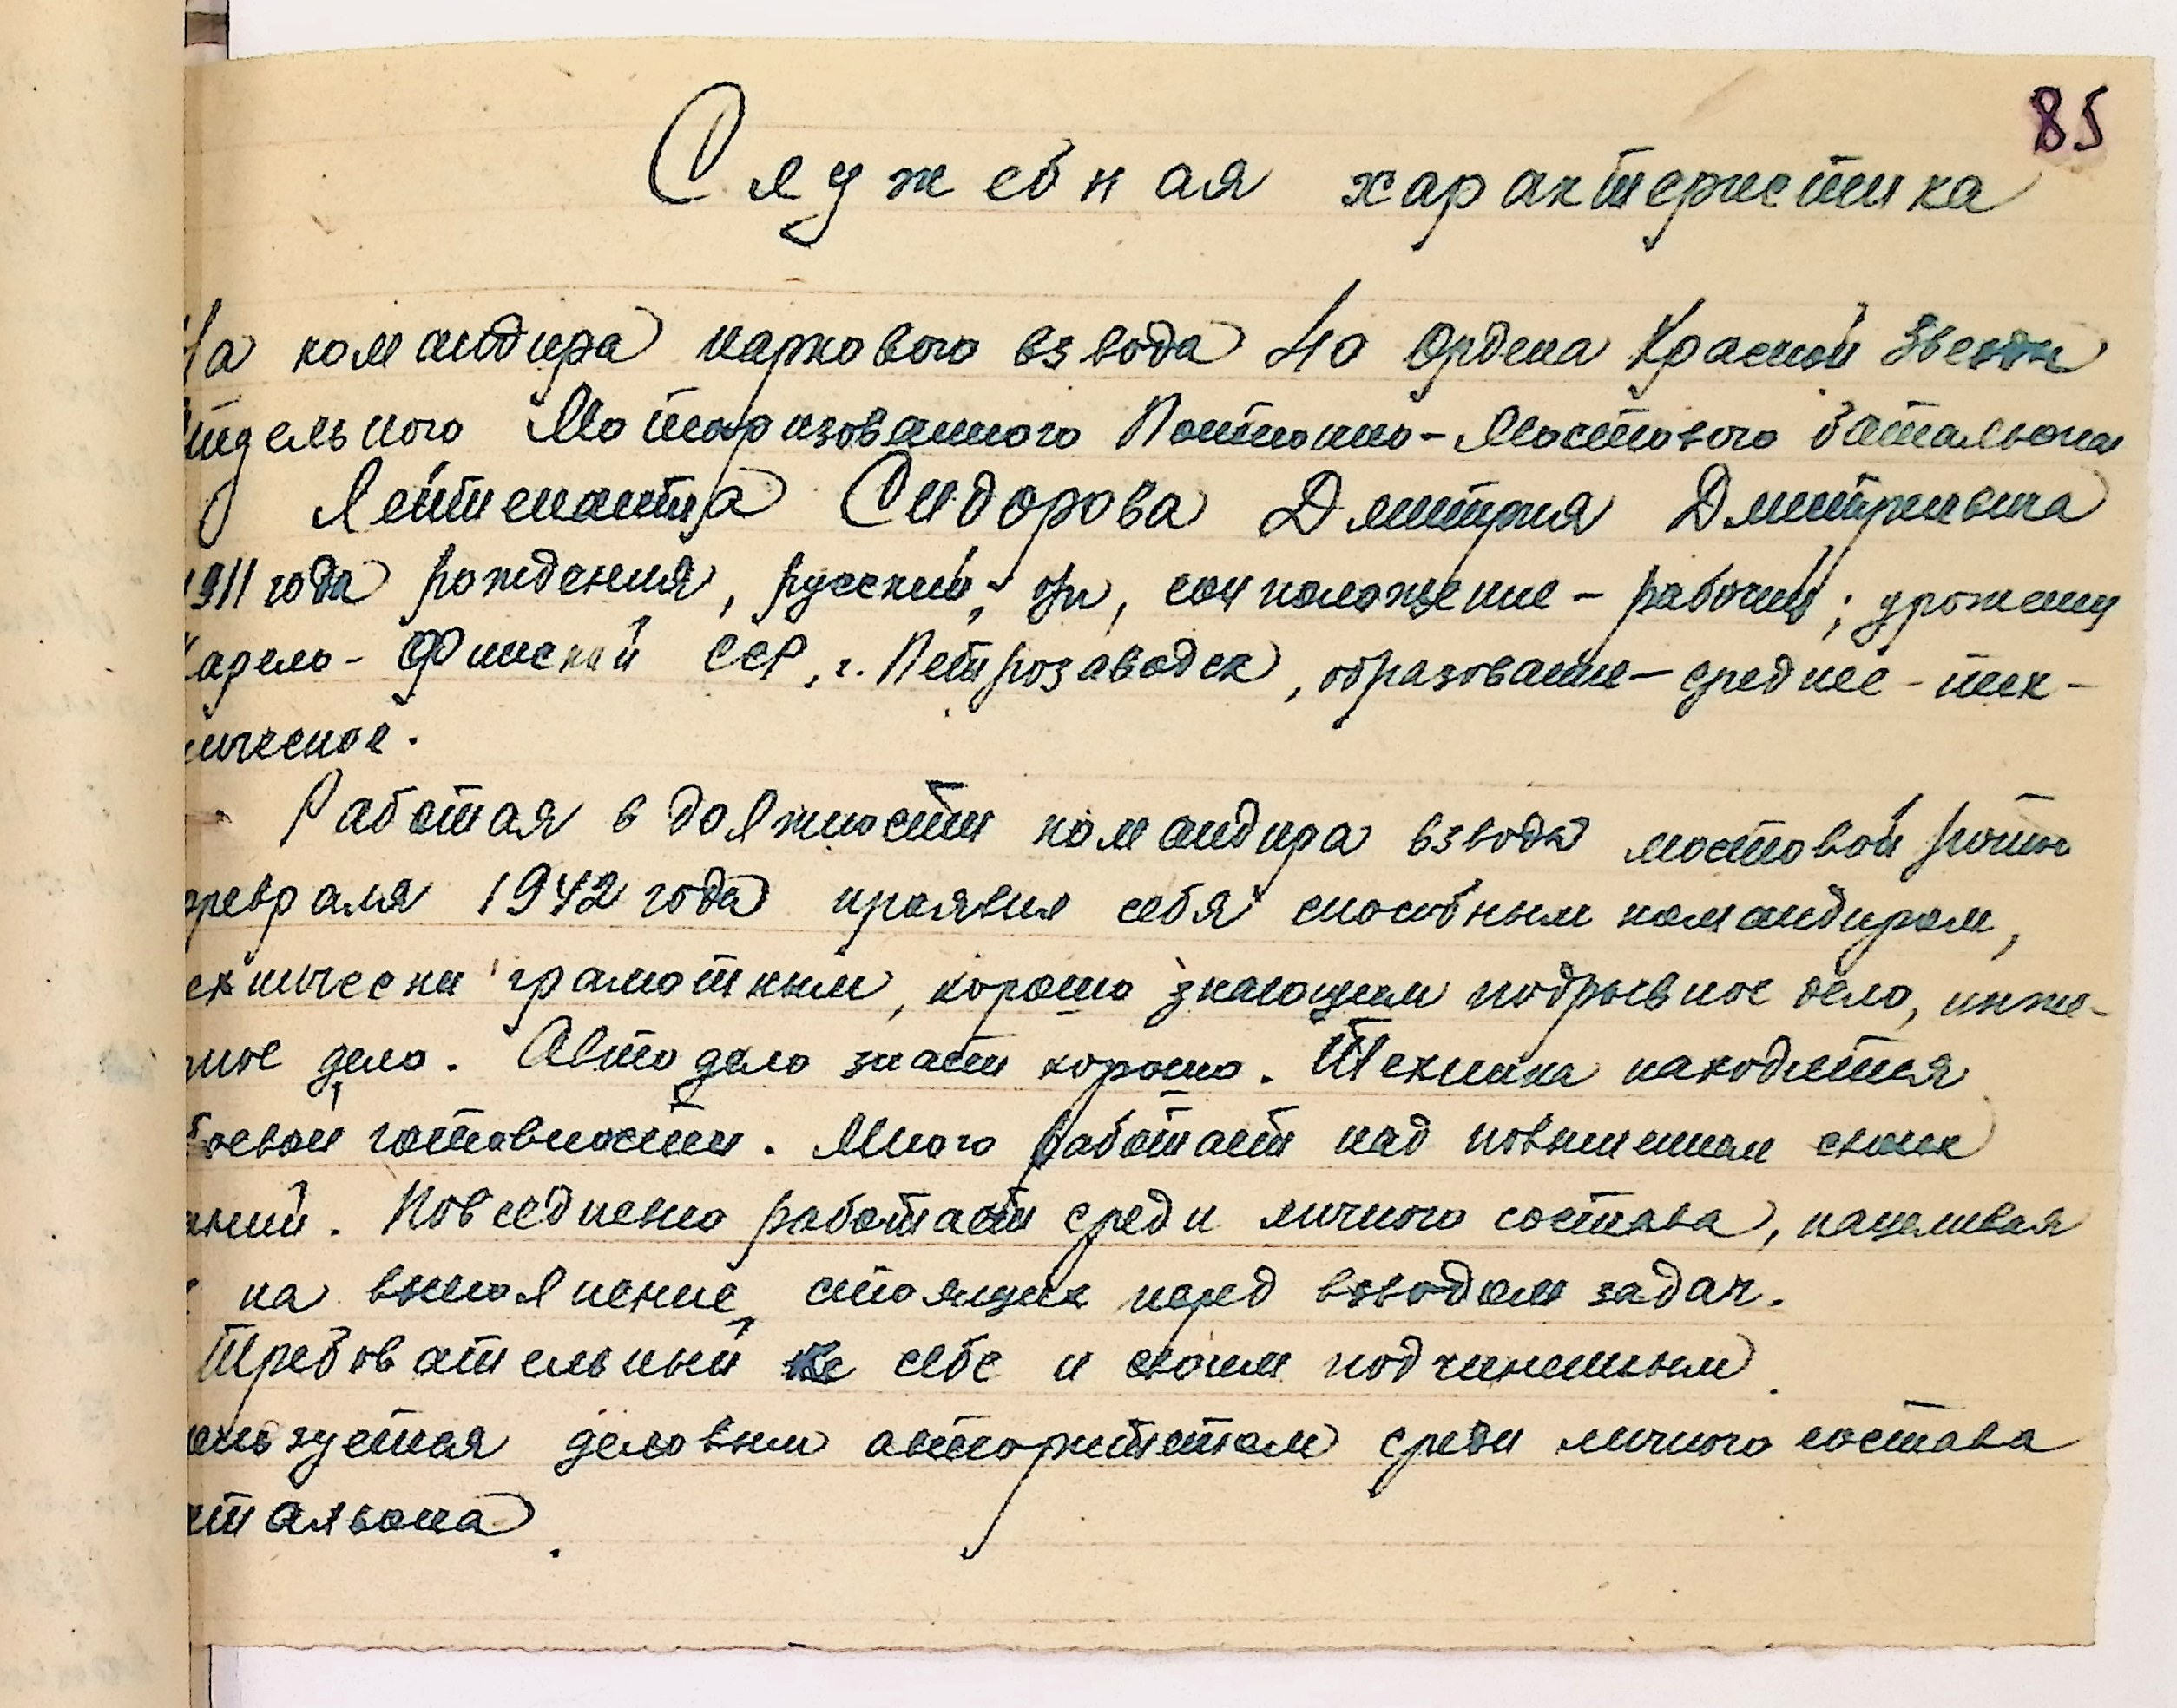 85
Служебная характеристика
На командира паркового взвода 40 Ордена Красной Звезды
тдельного Моторизованного Понтонно-Мостового Батальона
Лейтенанта Сидорова Дмитрия Дмитриевича
1911 года рождения, русский, соц положение - рабочий; уроженец
Карело-Финской ССР, г. Петрозаводск, образование - среднее - тех-
ническое.
Работая в должности командира взвода мостовой роты
февраля 1942 года проявил себя способным командиром,
ехнически грамотным, хорошо знающим подрывное дело, инже-
ное дело. Автодело знает хорошо. Техника находится
боевой готовности. Много работает над повышением своих
аний. Повседневно работает среди личного состава, нацеливая
на выполнение, стоящих перед взводом задач.
Требовательный к себе и своим подчиненным.
ользуется деловым авторитетом среди личного состава
атальона.